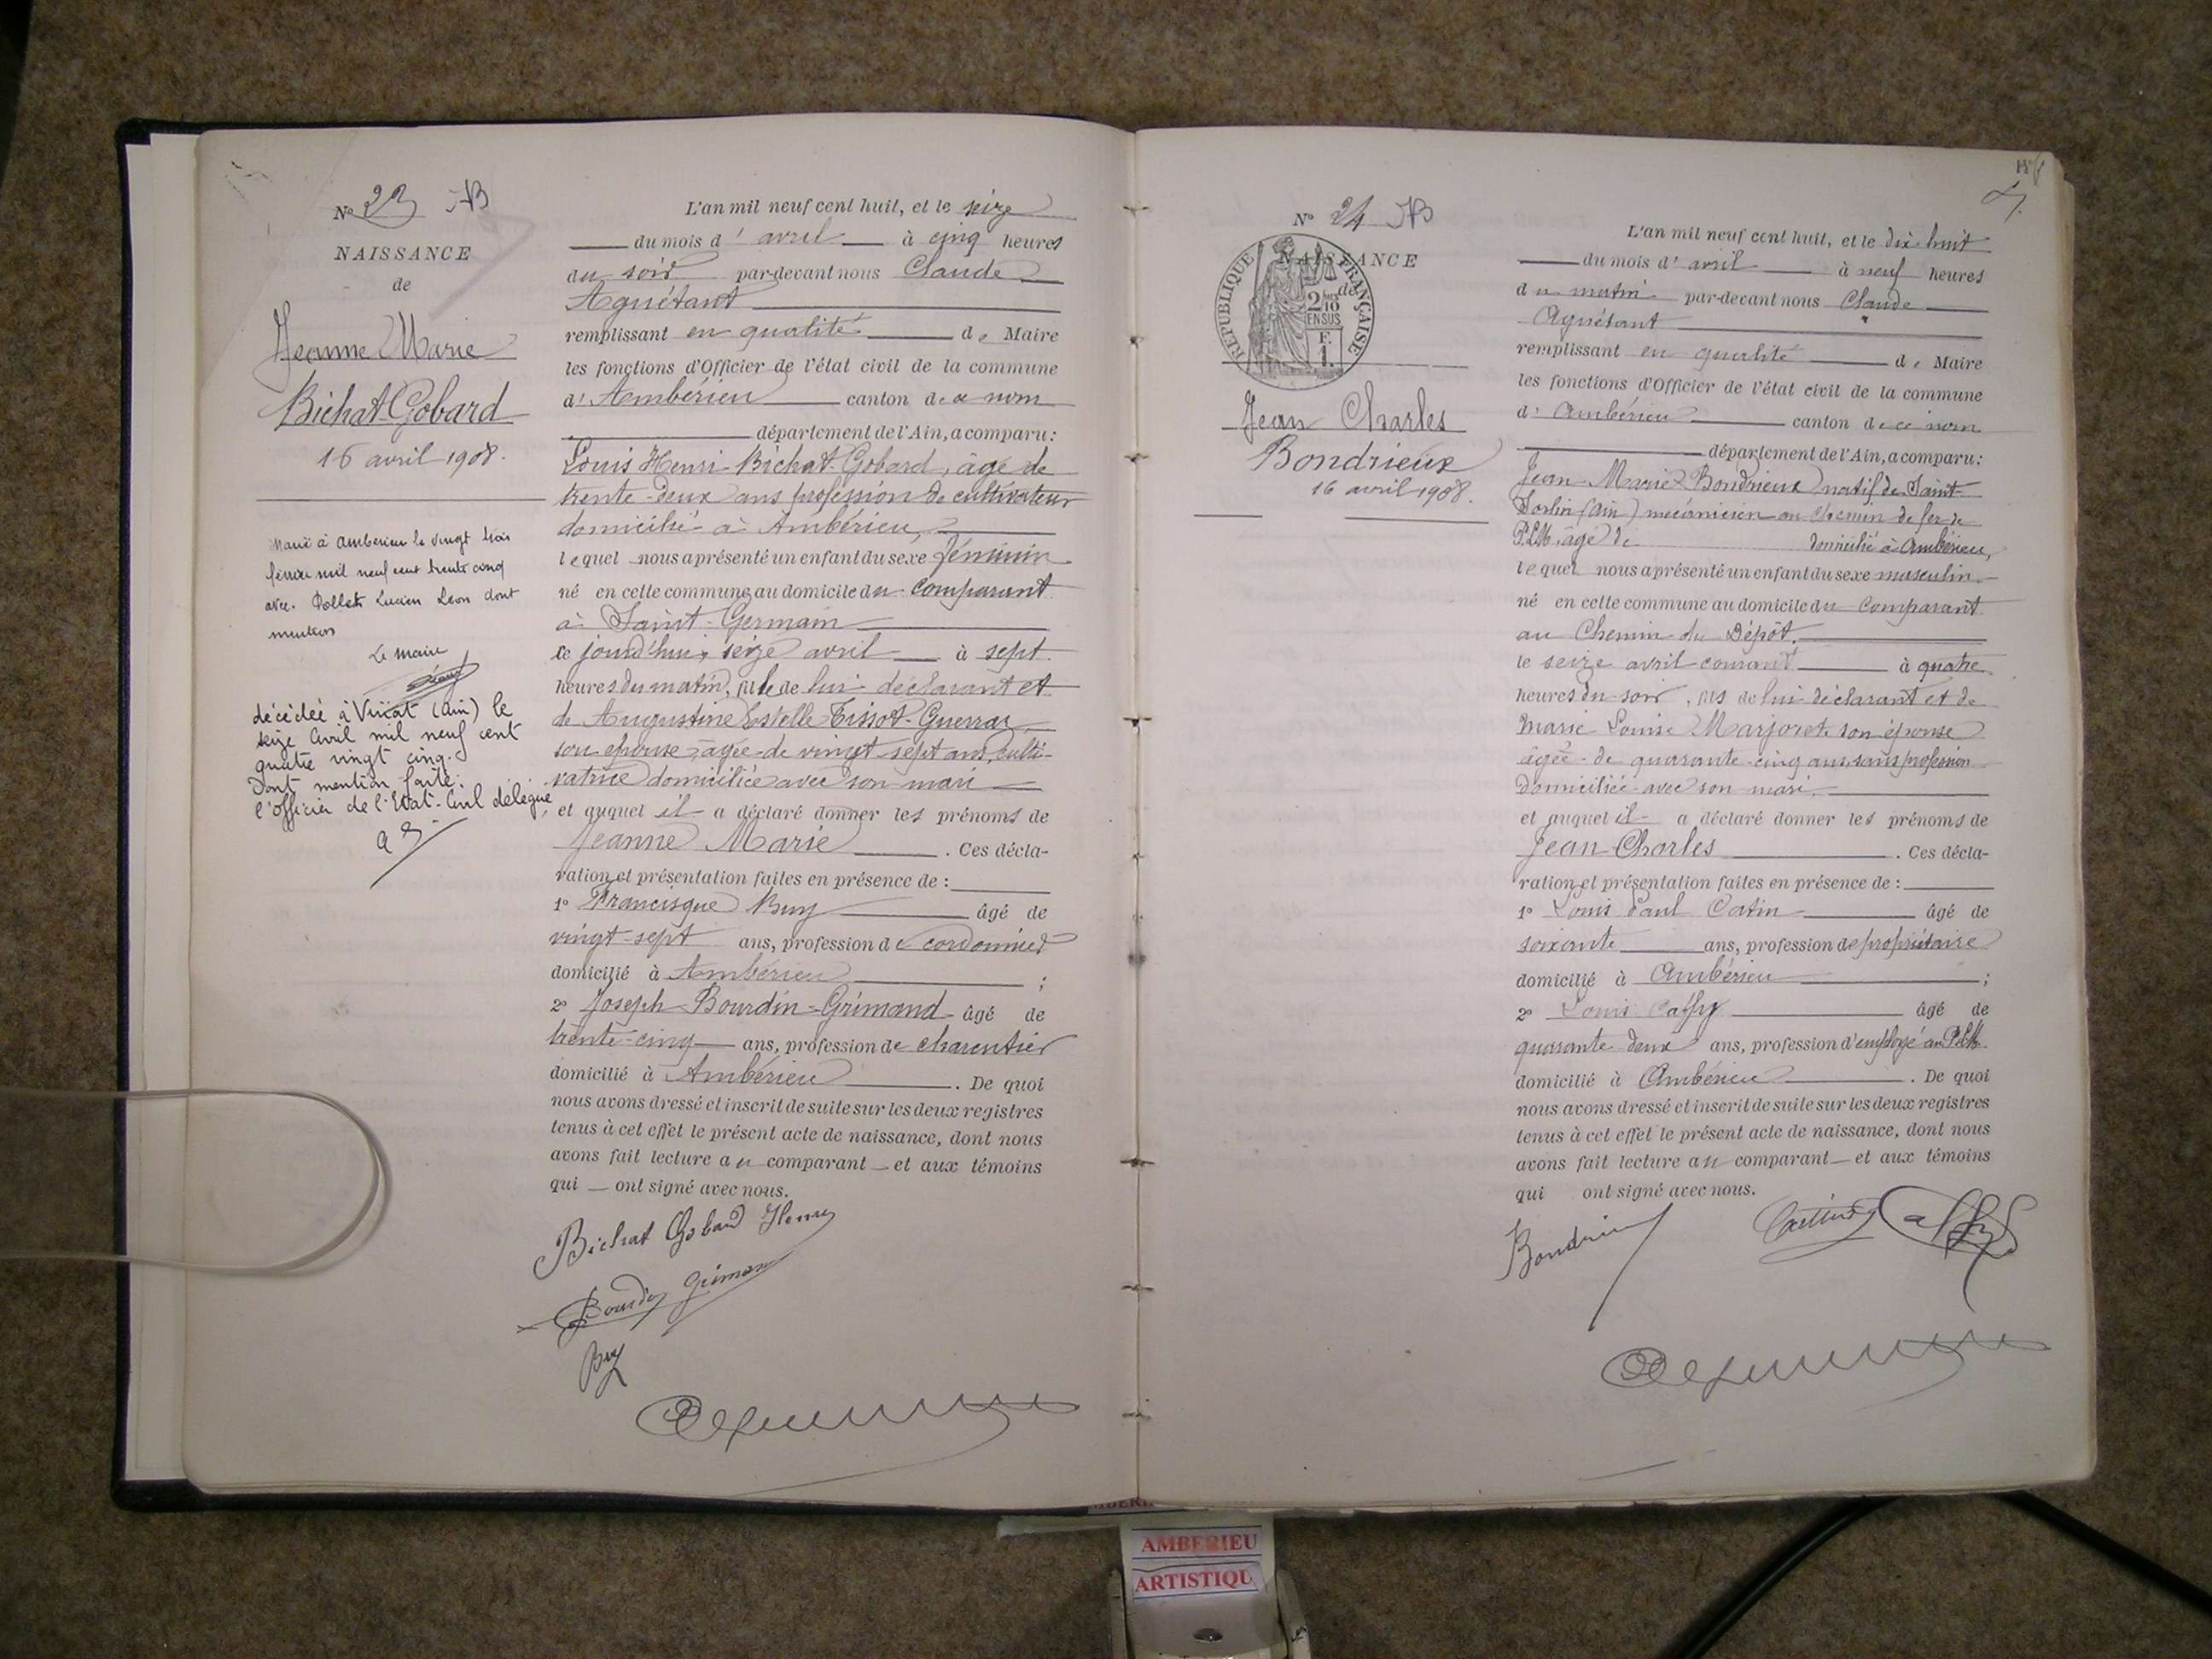 No 23
NAISSANCE
de
Jeanne Marie
Bichat-Gobard
16 avril 1908.
Marié à Amberieu le vingt trois
février mil neuf cent trente cinq
avec Pollet Lucien Leon dont
mention
Le Maire
décédée à Viriat (Ain) le
seize Avril mil neuf cent
quatre vingt cinq.
Dont mention faite:
l'officier de l'Etat-Civil délégué,
L'an mil neuf cent huit, et le seize
du mois d'avril à cinq heures
du soir par-devant nous Claude
Aguétant
remplissant en qualité de Maire
les fonctions d'Officier de l'état civil de la commune
d'Ambérieu canton de ce nom
département de l'Ain, a comparu:
Louis Henri Bichat-Gobard, âgé de
trente-deux ans profession de cultivateur
domicilié à Ambérieu,
lequel nous a présenté un enfant du sexe féminin
né en cette commune au domicile du comparant
à Saint-Germain
ce jourd'hui, seize avril à sept
heures du matin, fille de lui déclarant et
de Augustine Tissot-Guerraz,
son épouse, âgée de vingt-sept ans, culti-
vatrice domiciliée avec son mari
et auquel il a déclaré donner les prénoms de
Jeanne Marie . Ces décla-
ration et présentation faites en présence de :
1° Francisque Buy âgé de
vingt-sept ans, profession de cordonnier
domicilié à Ambérieu ;
2° Joseph Bourdin-Grimaud âgé de
trente-cinq ans, profession de charentier
domicilié à Ambérieu . De quoi
nous avons dressé et inscrit de suite sur les deux registres
tenus à cet effet le présent acte de naissance, dont nous
avons fait lecture au comparant et aux témoins
qui ont signé avec nous.
Bichat Gobard Henri
Bourdin Grimaud
Buy
No 24
NAISSANCE
de
RÉPUBLIQUE FRANÇAISE
2/10
EN SUS
F.
1.
Jean Charles
Bondrieux
16 avril 1908.
L'an mil neuf cent huit, et le dix-huit
du mois d'avril à neuf heures
du matin par-devant nous Claude
Aguétant
remplissant en qualité de Maire
les fonctions d'Officier de l'état civil de la commune
d'Ambérieu canton de ce nom
département de l'Ain, a comparu:
Jean Marie Bondrieux natif de Saint-
Sorlin (Ain) mécanicien au chemin de fer de
P.L.M., âgé de domicilié à Ambérieu,
lequel nous a présenté un enfant du sexe masculin
né en cette commune au domicile du comparant
au Chemin du Dépôt.
le seize avril courant à quatre
heures du soir, fils de lui déclarant et de
Marie Louise Marjoret son épouse
âgée de quarante-cinq ans, sans profession
domiciliée avec son mari.
et auquel il a déclaré donner les prénoms de
Jean-Charles . Ces décla-
ration et présentation faites en présence de :
1° Louis Paul Catin âgé de
soixante ans, profession de propriétaire
domicilié à Ambérieu ;
2° Louis âgé de
quarante-deux ans, profession d'employé au P.L.M.
domicilié à Ambérieu . De quoi
nous avons dressé et inscrit de suite sur les deux registres
tenus à cet effet le présent acte de naissance, dont nous
avons fait lecture au comparant et aux témoins
qui ont signé avec nous.
Bondrieux
AMBERIEU
ARTISTIQU